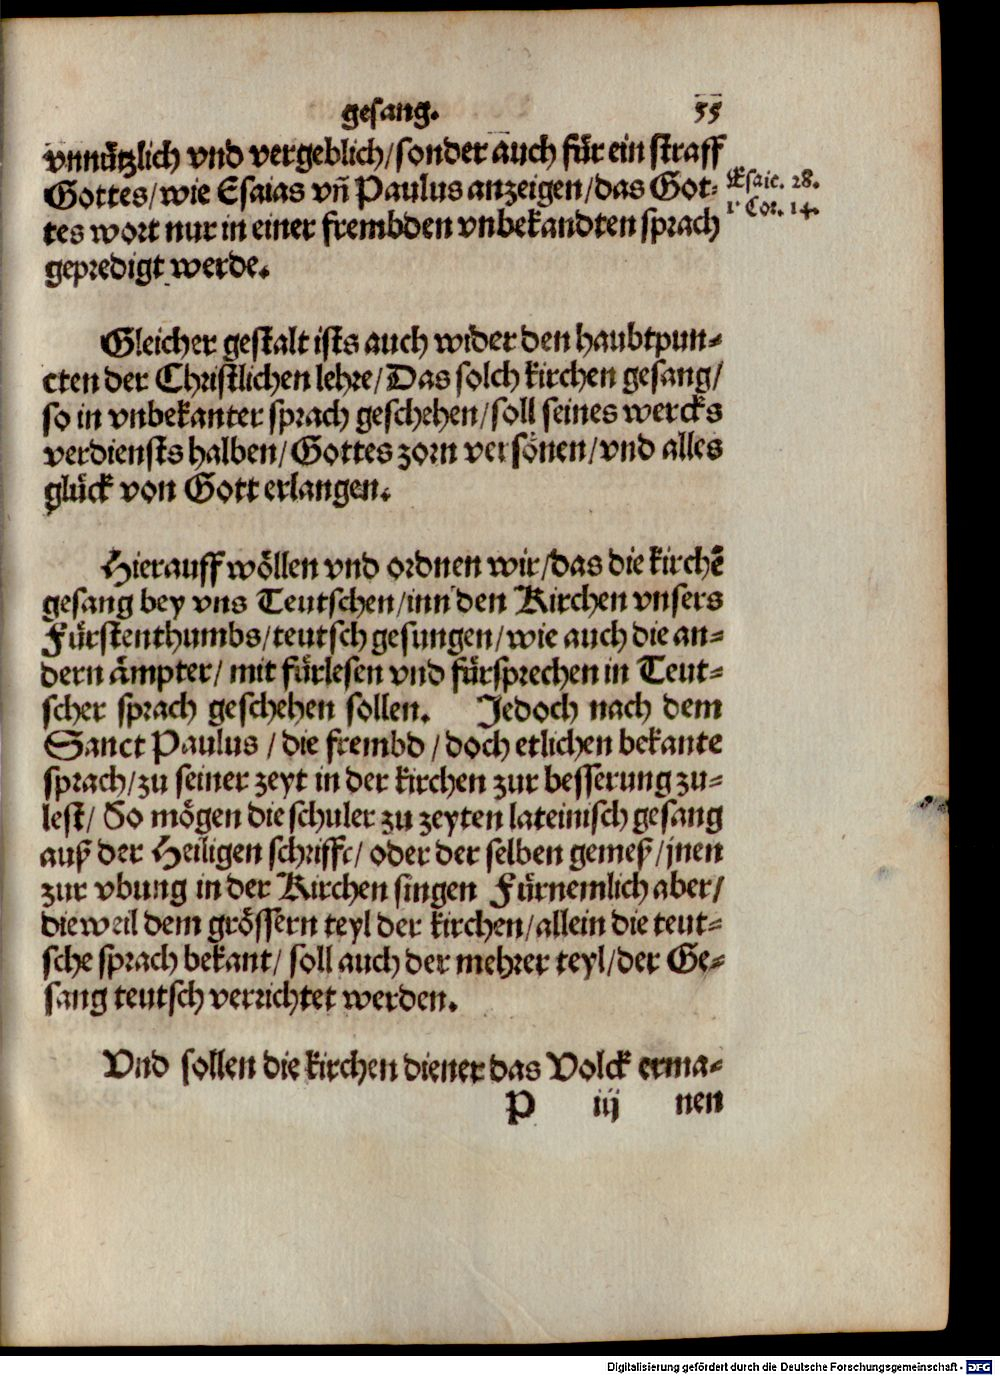 gesang. 55
vnnützlich vnd vergeblich/sonder auch für ein straff
Gottes/wie Esaias vñ Paulus anzeigen/das Got⸗
Esaie. 28.
tes wort nur in einer frembden vnbekandten sprach
1 Cor. 14.
gepredigt werde.
Gleicher gestalt ists auch wider den haubtpun⸗
cten der Christlichen lehre/Das solch kirchen gesang/
so in vnbekanter sprach geschehen/soll seines wercks
verdiensts halben/Gottes zorn versönen/vnd alles
glück von Gott erlangen.
Hierauff wöllen vnd ordnen wir/das die kirchẽ
gesang bey vns Teutschen/inn den Kirchen vnsers
Fürstenthumbs/teutsch gesungen/wie auch die an⸗
dern ämpter/ mit fürlesen vnd fürsprechen in Teut⸗
scher sprach geschehen sollen. Jedoch nach dem
Sanct Paulus /die frembd /doch etlichen bekante
sprach/zu seiner zeyt in der kirchen zur besserung zu⸗
lest/ So mögen die schuler zu zeyten lateinisch gesang
auß der Heiligen schrifft/ oder der selben gemeß/jnen
zur vbung in der Kirchen singen Fürnemlich aber/
die weil dem grössern teyl der kirchen/allein die teut⸗
sche sprach bekant/ soll auch der mehrer teyl/der Ge⸗
sang teutsch verrichtet werden.
Vnd sollen die kirchen diener das Volck erma⸗
P iij nen
Digitalisierung gefördert durch die Deutsche Forschungsgemeinschaft - DFG